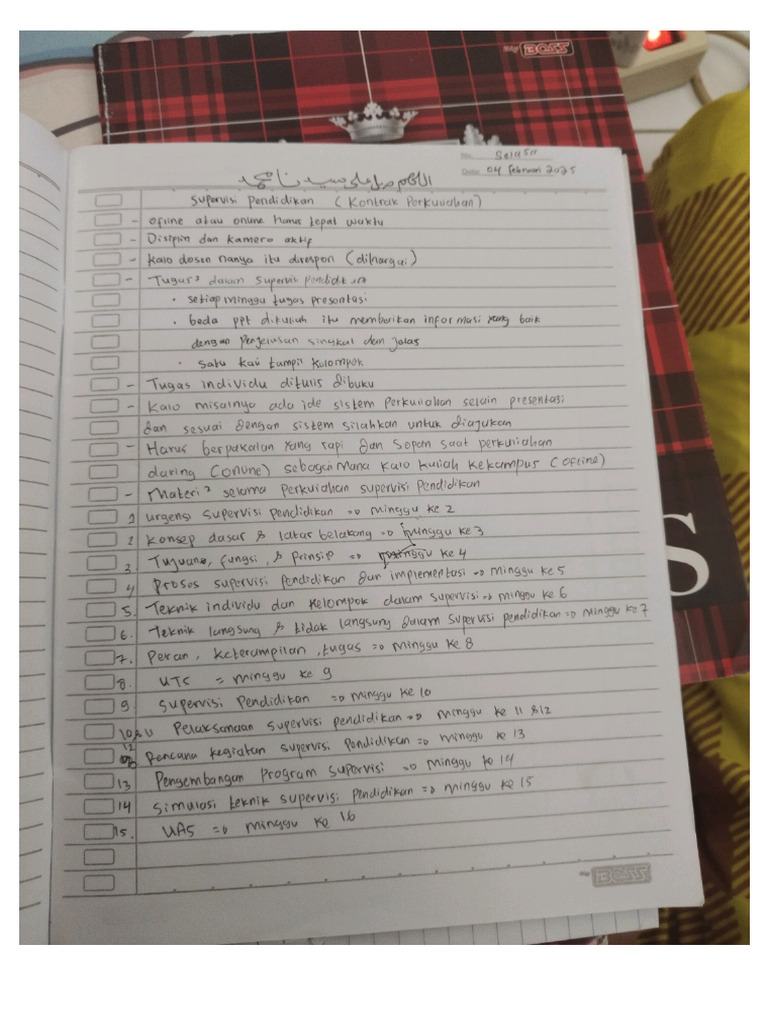 My BOSS
No. Selasa
Date: 04 Februari 2025
اللهم صل على سيدنا محمد
Supervisi Pendidikan (Kontrak Perkuliahan)
- Ofline atau online Harus tepat waktu
- Disiplin dan kamera aktif
- Kalo dosen nanya itu direspon (dihargai)
- Tugas² dalam supervisi pendidikan
• setiap minggu tugas presentasi
• beda ppt dikuliah itu memberikan informasi yang baik
dengan penjelasan singkat dan jelas
• satu kali tampil kelompok
- Tugas individu ditulis dibuku
- Kalo misalnya ada ide sistem perkuliahan selain presentasi
dan sesuai dengan sistem silahkan untuk diajukan
- Harus berpakaian yang rapi dan sopan saat perkuliahan
daring (online) sebagaimana kalo kuliah kekampus (ofline)
- Materi² selama perkuliahan supervisi pendidikan
1 urgensi supervisi pendidikan => minggu ke 2
2 Konsep dasar & latar belakang => minggu ke 3
3. Tujuan, fungsi, & prinsip => minggu ke 4
4 Proses supervisi pendidikan dan implementasi => minggu ke 5
5. Teknik individu dan kelompok dalam supervisi => minggu ke 6
6. Teknik langsung & tidak langsung dalam supervisi pendidikan => minggu ke 7
7. Peran, keterampilan, tugas => minggu ke 8
8. UTS = minggu ke 9
9 Supervisi Pendidikan => minggu ke 10
10 & 11 Pelaksanaan supervisi pendidikan => minggu ke 11 & 12
12 Rencana kegiatan supervisi pendidikan => minggu ke 13
13 Pengembangan program supervisi => minggu ke 14
14 Simulasi teknik supervisi pendidikan => minggu ke 15
15. UAS => minggu ke 16
My BOSS
S